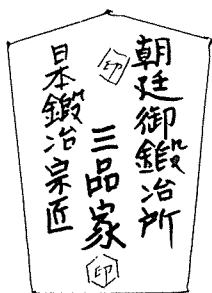 朝廷御鍛冶所
印
三品家
印
日本鍛冶宗匠